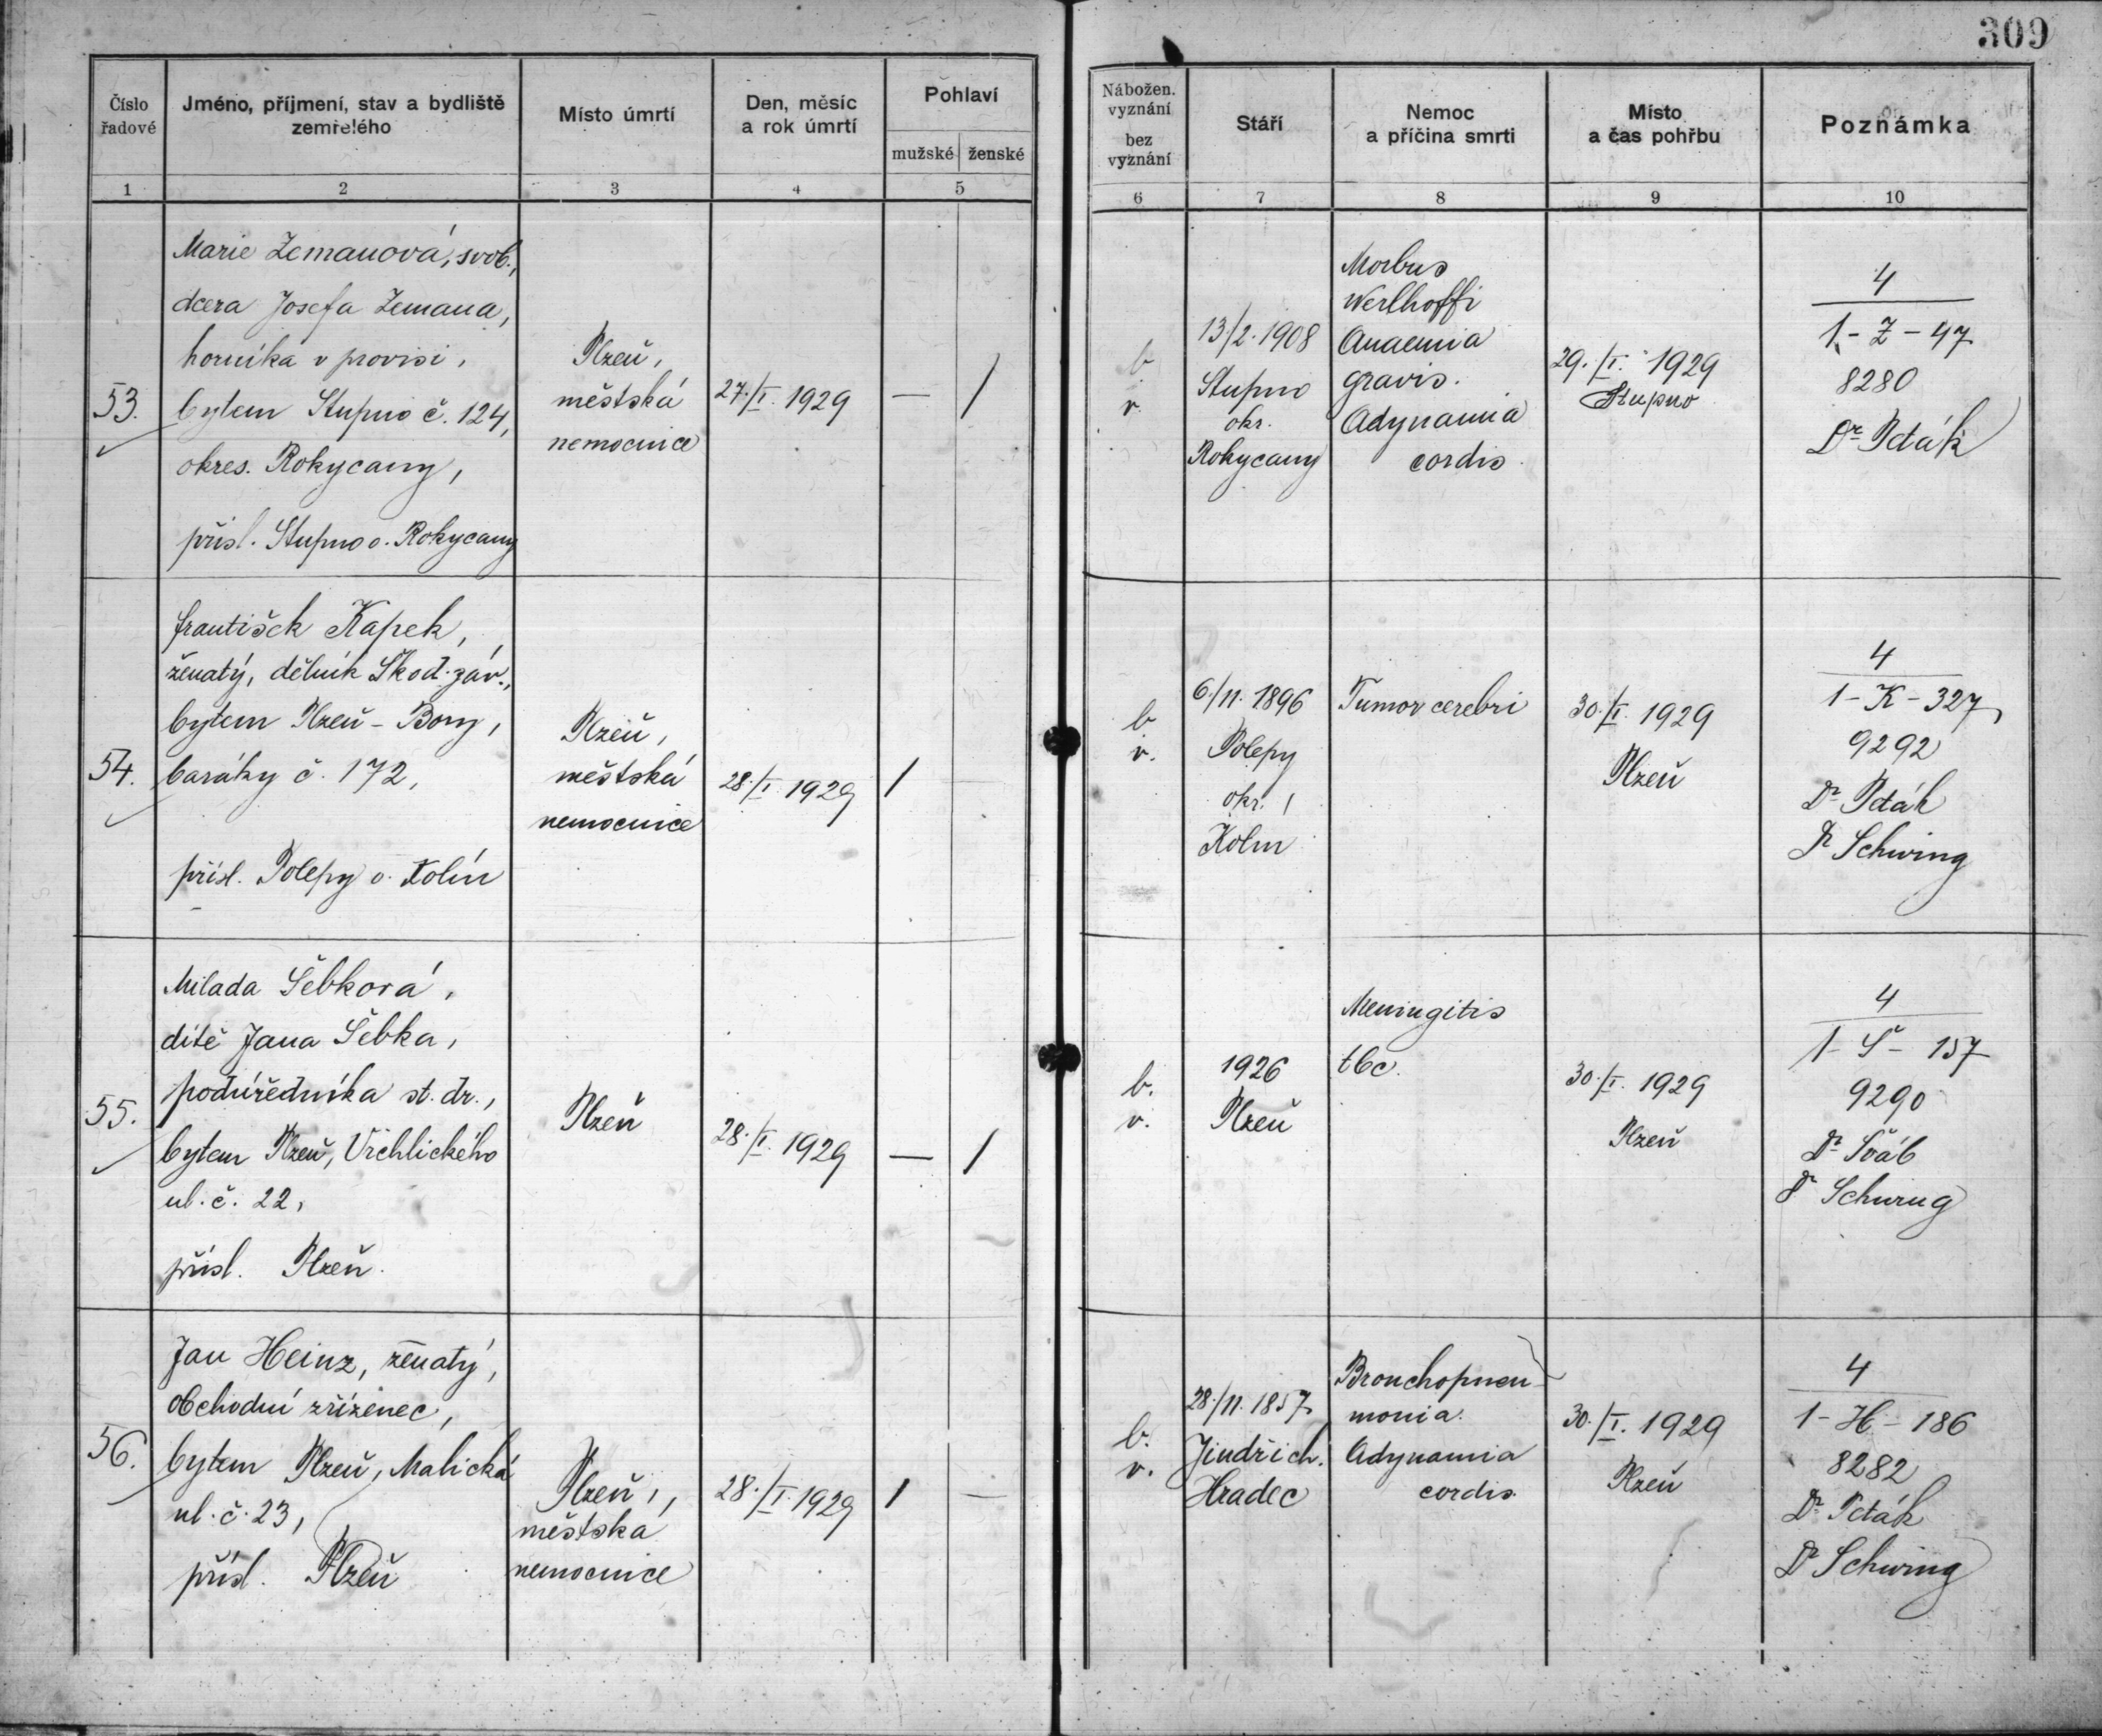 309
Číslo
řadové
Jméno, příjmení, stav a bydliště
zemřelého
Místo úmrtí
Den, měsíc
a rok úmrtí
Pohlaví
mužské
ženské
1
2
3
4
5
Nábožen.
vyznání
bez
vyznání
Stáří
Nemoc
a příčina smrti
Místo
a čas pohřbu
Poznámka
6
7
8
9
10
53.
Marie Zemanová, svob.,
dcera Josefa Zemana,
horníka v provisi,
bytem Stupno č. 124,
okres. Rokycany,
přísl. Stupno o. Rokycany
Plzeň,
městská
nemocnice
27./I. 1929
—
/
b
v.
13/2. 1908
Stupno
okr.
Rokycany
Morbus
Werlhoffi
Anaemia
gravis.
Adynamia
cordis
29./I. 1929
Stupno
4
1 - Z - 47
8280
Dr Pták
54.
František Kapek,
ženatý, dělník Škod. záv.,
bytem Plzeň - Bory,
baráky č. 172,
přísl. Polepy o. Kolín
Plzeň,
městská
nemocnice
28./I. 1929
/
—
b
v.
6./11. 1896
Polepy
okr.
Kolín
Tumor cerebri
30./I. 1929
Plzeň
4
1 - K - 327
9292
Dr Pták
Dr Schwing
55.
Milada Šebková,
dítě Jana Šebka,
podúředníka st. dr.,
bytem Plzeň, Vrchlického
ul. č. 22,
přísl. Plzeň.
Plzeň
28./I. 1929
—
/
b.
v.
1926
Plzeň
Meningitis
tbc.
30./I. 1929
Plzeň
4
1 - Š - 157
9290
Dr Šváb
Dr Schwing
56.
Jan Heinz, ženatý,
obchodní zřízenec,
bytem Plzeň, Malická
ul. č. 23,
přísl. Plzeň
Plzeň,
městská
nemocnice
28./I. 1929
/
—
b.
v.
28./11. 1857
Jindřich.
Hradec
Bronchopneu-
monia.
Adynamia
cordis.
30./I. 1929
Plzeň
4
1 - H - 186
8282
Dr Pták
Dr Schwing